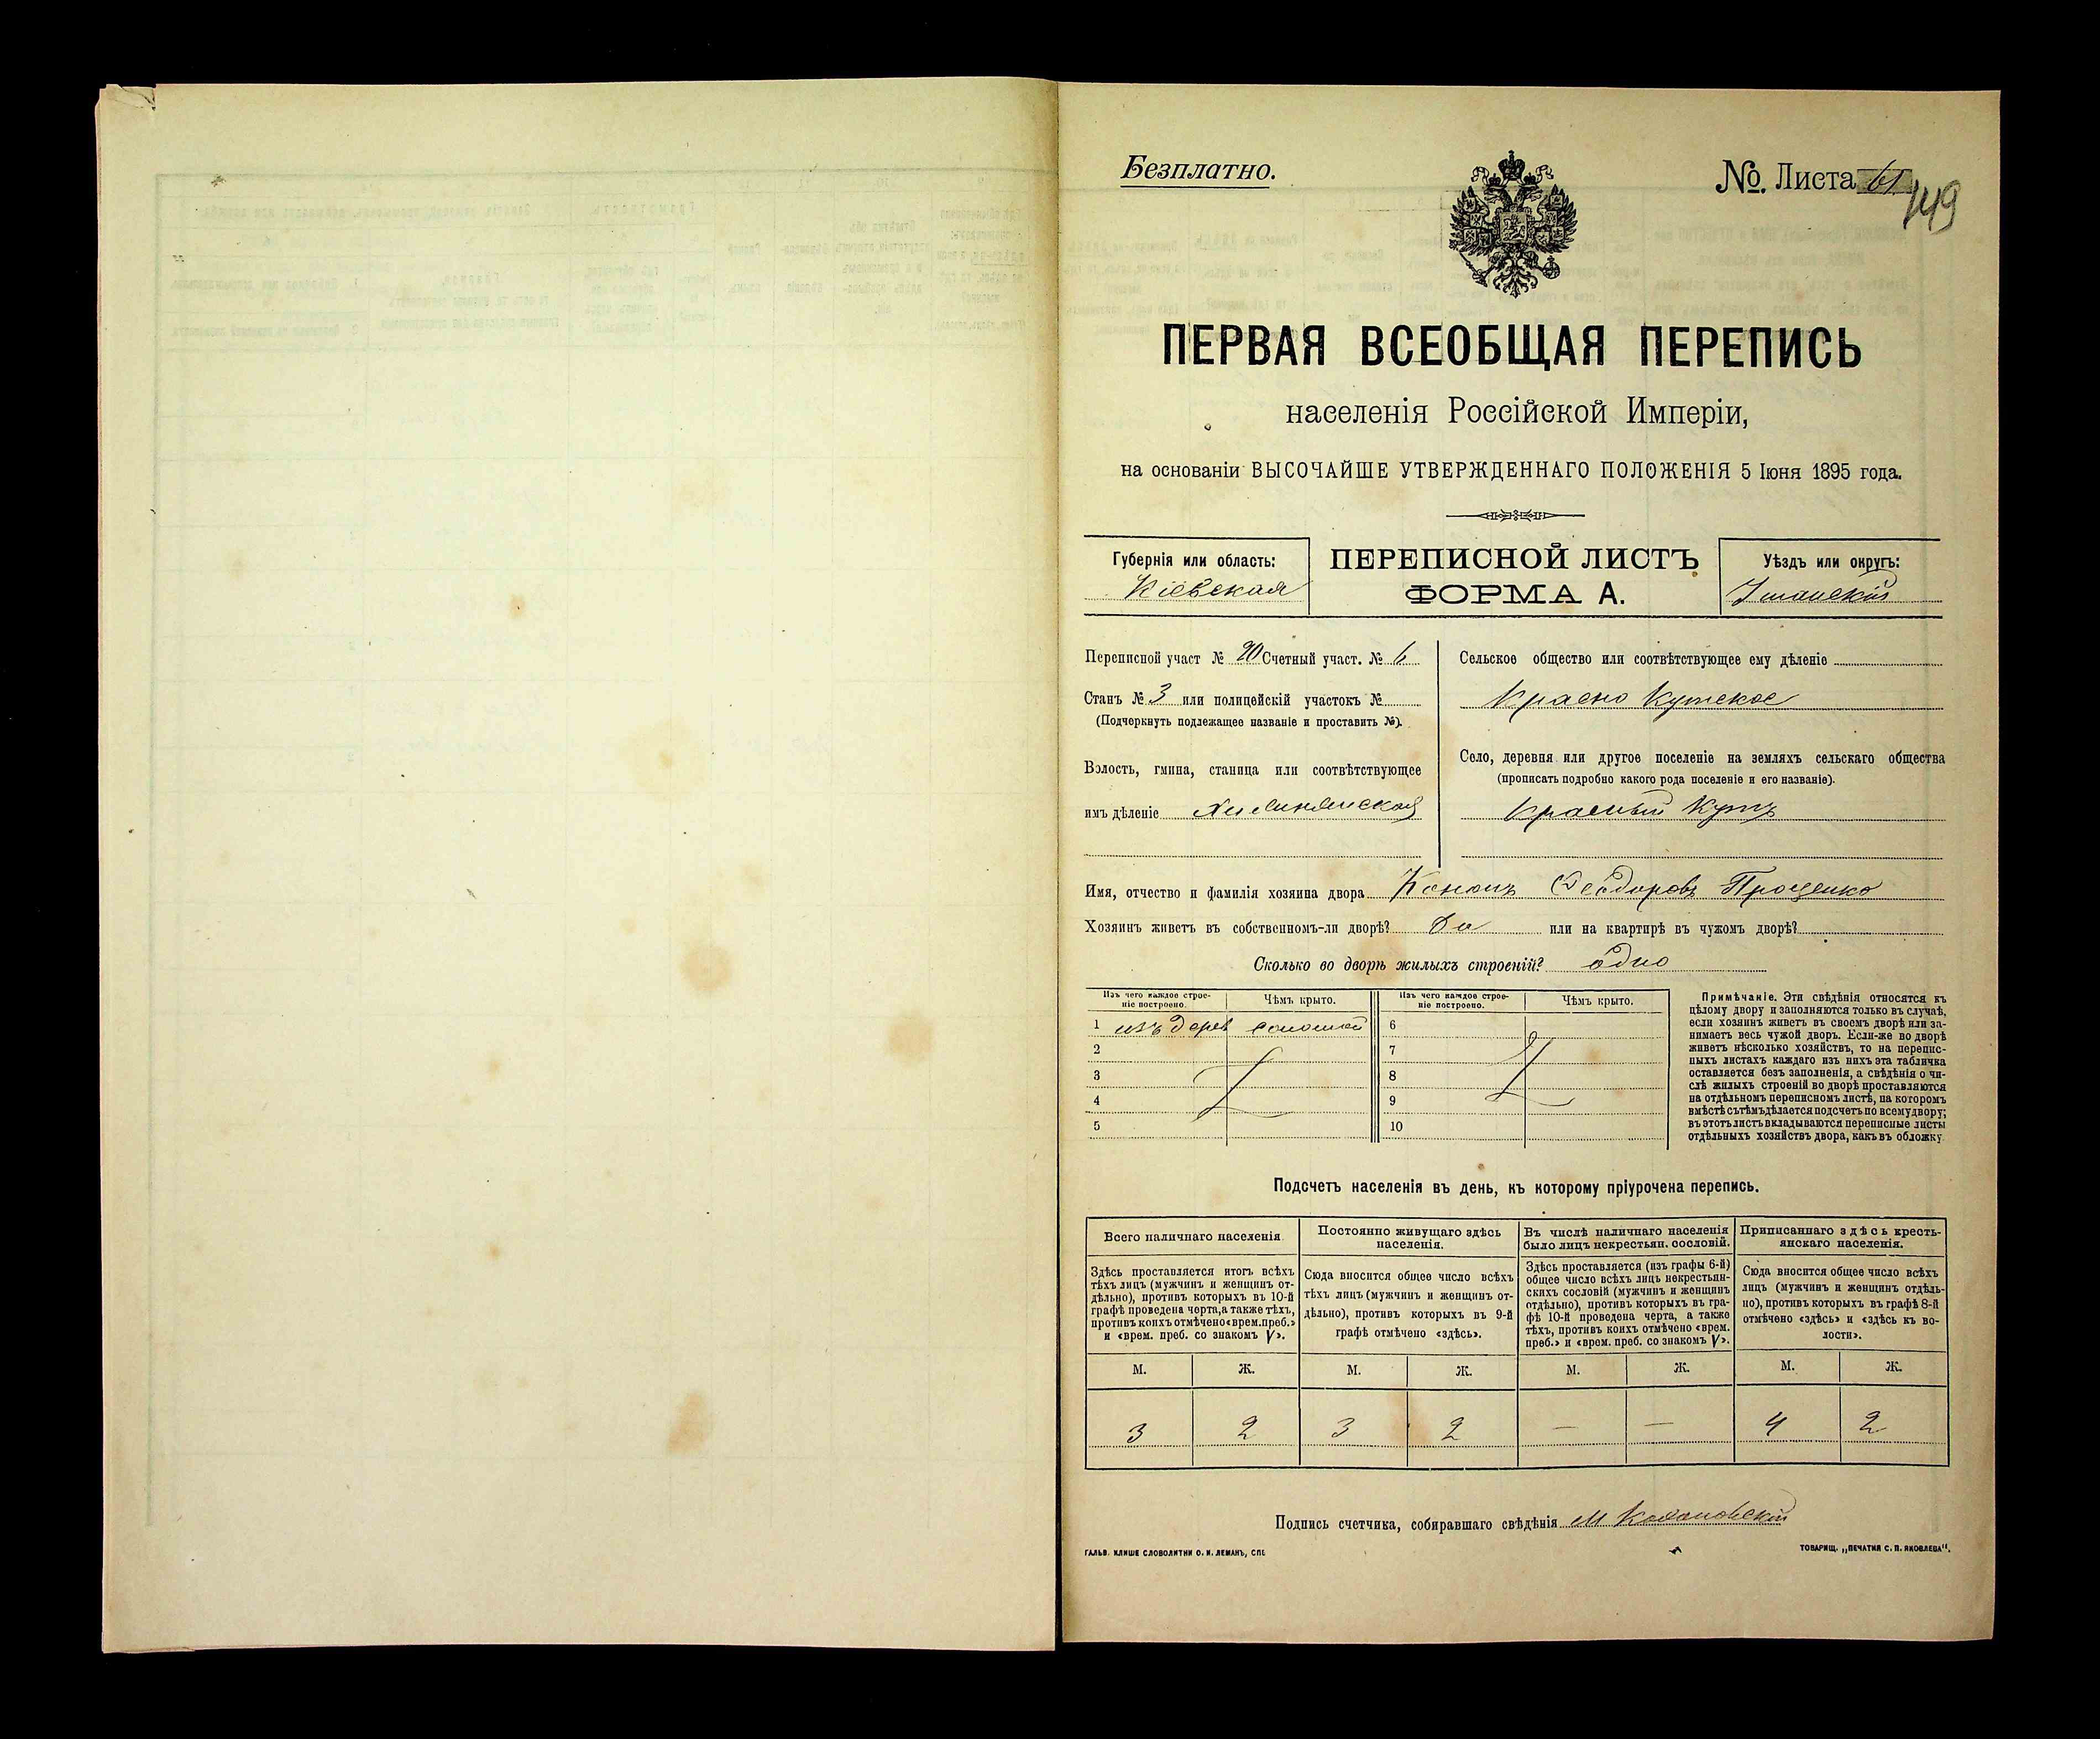 Безплатно.
№. Листа 61
149
ПЕРВАЯ ВСЕОБЩАЯ ПЕРЕПИСЬ
населенія Россійской Имперіи,
на основаніи ВЫСОЧАЙШЕ УТВЕРЖДЕННАГО ПОЛОЖЕНІЯ 5 Іюня 1895 года.
Губернія или область:
Кіевская
ПЕРЕПИСНОЙ ЛИСТЪ
ФОРМА А.
Уѣздъ или округъ:
Уманскій
Переписной участ № 20 Счетный участ. № 6
Станъ № 3 или полицейскій участокъ №
(Подчеркнуть подлежащее названіе и проставить №).
Волость, гмина, станица или соотвѣтствующее
имъ дѣленіе
Сельское общество или соотвѣтствующее ему дѣленіе
Красно Кутское
Село, деревня или другое поселеніе на земляхъ сельскаго общества
(прописать подробно какого рода поселеніе и его названіе).
Красный Кутъ
Имя, отчество и фамилія хозяина двора Кононъ Ѳеодоровъ Проценко
Хозяинъ живетъ въ собственномъ-ли дворѣ? Да или на квартирѣ въ чужомъ дворѣ?
Сколько во дворѣ жилыхъ строеній? одно
Изъ чего каждое строе-
ніе построено.
Чѣмъ крыто.
Изъ чего каждое строе-
ніе построено.
Чѣмъ крыто.
1 изъ дерев соломой 6
2 7
3 8
4 9
5 10
Примѣчаніе. Эти свѣдѣнія относятся къ
цѣлому двору и заполняются только въ случаѣ,
если хозяинъ живетъ въ своемъ дворѣ или за-
нимаетъ весь чужой дворъ. Если-же во дворѣ
живетъ нѣсколько хозяйствъ, то на перепис-
ныхъ листахъ каждаго изъ нихъ эта табличка
оставляется безъ заполненія, а свѣдѣнія о чи-
слѣ жилыхъ строеній во дворѣ проставляются
на отдѣльномъ переписномъ листѣ, на которомъ
вмѣстѣ съ тѣмъ дѣлается подсчетъ по всему двору;
въ этотъ листъ вкладываются переписные листы
отдѣльныхъ хозяйствъ двора, какъ въ обложку.
Подсчетъ населенія въ день, къ которому пріурочена перепись.
Всего наличнаго населенія.
Здѣсь проставляется итогъ всѣхъ
тѣхъ лицъ (мужчинъ и женщинъ от-
дѣльно), противъ которыхъ въ 10-й
графѣ проведена черта, а также тѣхъ,
противъ коихъ отмѣчено «врем. преб.»
и «врем. преб. со знакомъ V».
Постоянно живущаго здѣсь
населенія.
Сюда вносится общее число всѣхъ
тѣхъ лицъ (мужчинъ и женщинъ от-
дѣльно), противъ которыхъ въ 9-й
графѣ отмѣчено «здѣсь».
Въ числѣ наличнаго населенія
было лицъ некрестьян. сословій.
Здѣсь проставляется (изъ графы 6-й)
общее число всѣхъ лицъ некрестьян-
скихъ сословій (мужчинъ и женщинъ
отдѣльно), противъ которыхъ въ гра-
фѣ 10-й проведена черта, а также
тѣхъ, противъ коихъ отмѣчено «врем.
преб.» и «врем. преб. со знакомъ V».
Приписаннаго здѣсь кресть-
янскаго населенія.
Сюда вносится общее число всѣхъ
лицъ (мужчинъ и женщинъ отдѣль-
но), противъ которыхъ въ графѣ 8-й
отмѣчено «здѣсь» и «здѣсь къ во-
лости».
М. Ж. М. Ж. М. Ж. М. Ж.
3 2 3 2 — — 4 2
Подпись счетчика, собиравшаго свѣдѣнія М
ГАЛЬВ. КЛИШЕ СЛОВОЛИТНИ О. И. ЛЕМАНЪ, СПБ.
ТОВАРИЩ. „ПЕЧАТНЯ С. П. ЯКОВЛЕВА“.